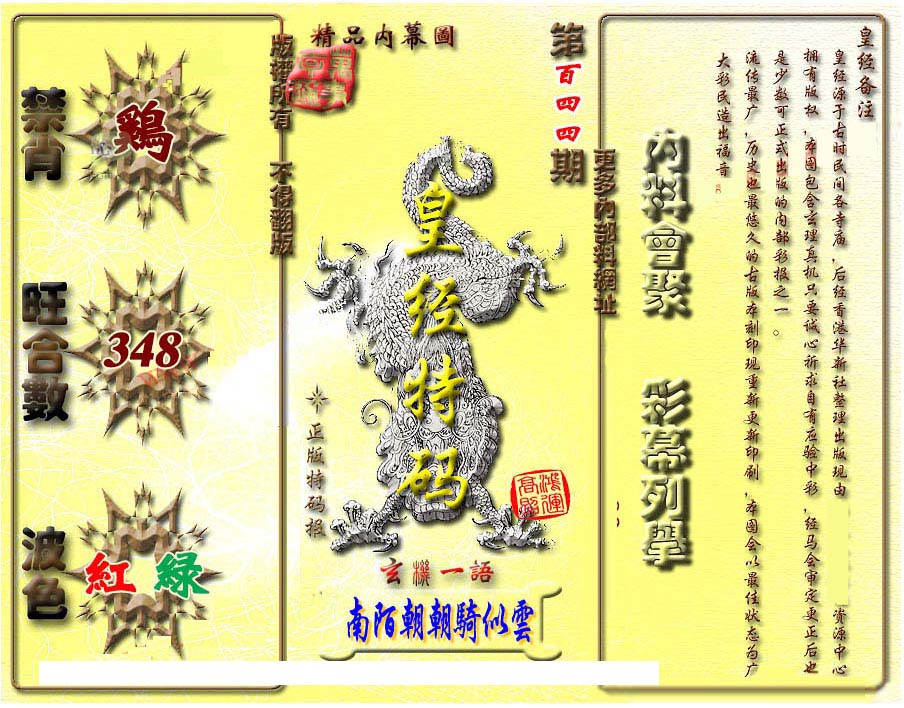 精品内幕圖
第百四四期
版權所有 不得翻版
更多内部料網址
禁肖
鷄
旺合數
348
波色
紅 綠
皇经特码
正版特码报
鴻運高照
玄機一語
南陌朝朝騎似雲
内料會聚
彩幕列舉
皇经备注
皇经源于古时民间各寺庙,后经香港华新社整理出版现由 资源中心
拥有版权,本图包含玄理真机只要诚心祈求自有应验中彩,经马会审定更正后也
是少数可正式出版的内部彩报之一。
流传最广,历史也最悠久的古版本刻印现重新更新印刷,本图会以最佳状态为广
大彩民造出福音